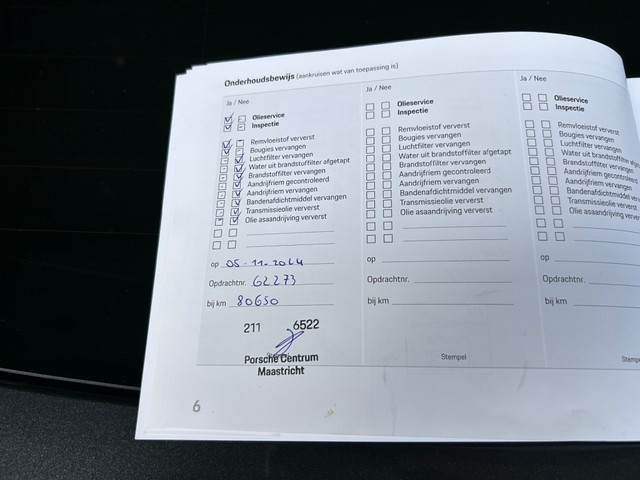 Onderhoudsbewijs (aankruisen wat van toepassing is)
Ja / Nee
Olieservice
Inspectie
Remvloeistof ververst
Bougies vervangen
Luchtfilter vervangen
Water uit brandstoffilter afgetapt
Brandstoffilter vervangen
Aandrijfriem gecontroleerd
Aandrijfriem vervangen
Bandenafdichtmiddel vervangen
Transmissieolie ververst
Olie asaandrijving ververst
op 05-11-2024
Opdrachtnr. 62273
bij km 80650
211 6522
Porsche Centrum
Maastricht
6
Ja / Nee
Olieservice
Inspectie
Remvloeistof ververst
Bougies vervangen
Luchtfilter vervangen
Water uit brandstoffilter afgetapt
Brandstoffilter vervangen
Aandrijfriem gecontroleerd
Aandrijfriem vervangen
Bandenafdichtmiddel vervangen
Transmissieolie ververst
Olie asaandrijving ververst
op
Opdrachtnr.
bij km
Stempel
Ja / Nee
Olieservice
Inspectie
Remvloeistof ververst
Bougies vervangen
Luchtfilter vervangen
Water uit brandstoffilter
Brandstoffilter vervangen
Aandrijfriem gecontroleerd
Aandrijfriem vervangen
Bandenafdichtmiddel
Transmissieolie ververst
Olie asaandrijving ververst
op
Opdrachtnr.
bij km